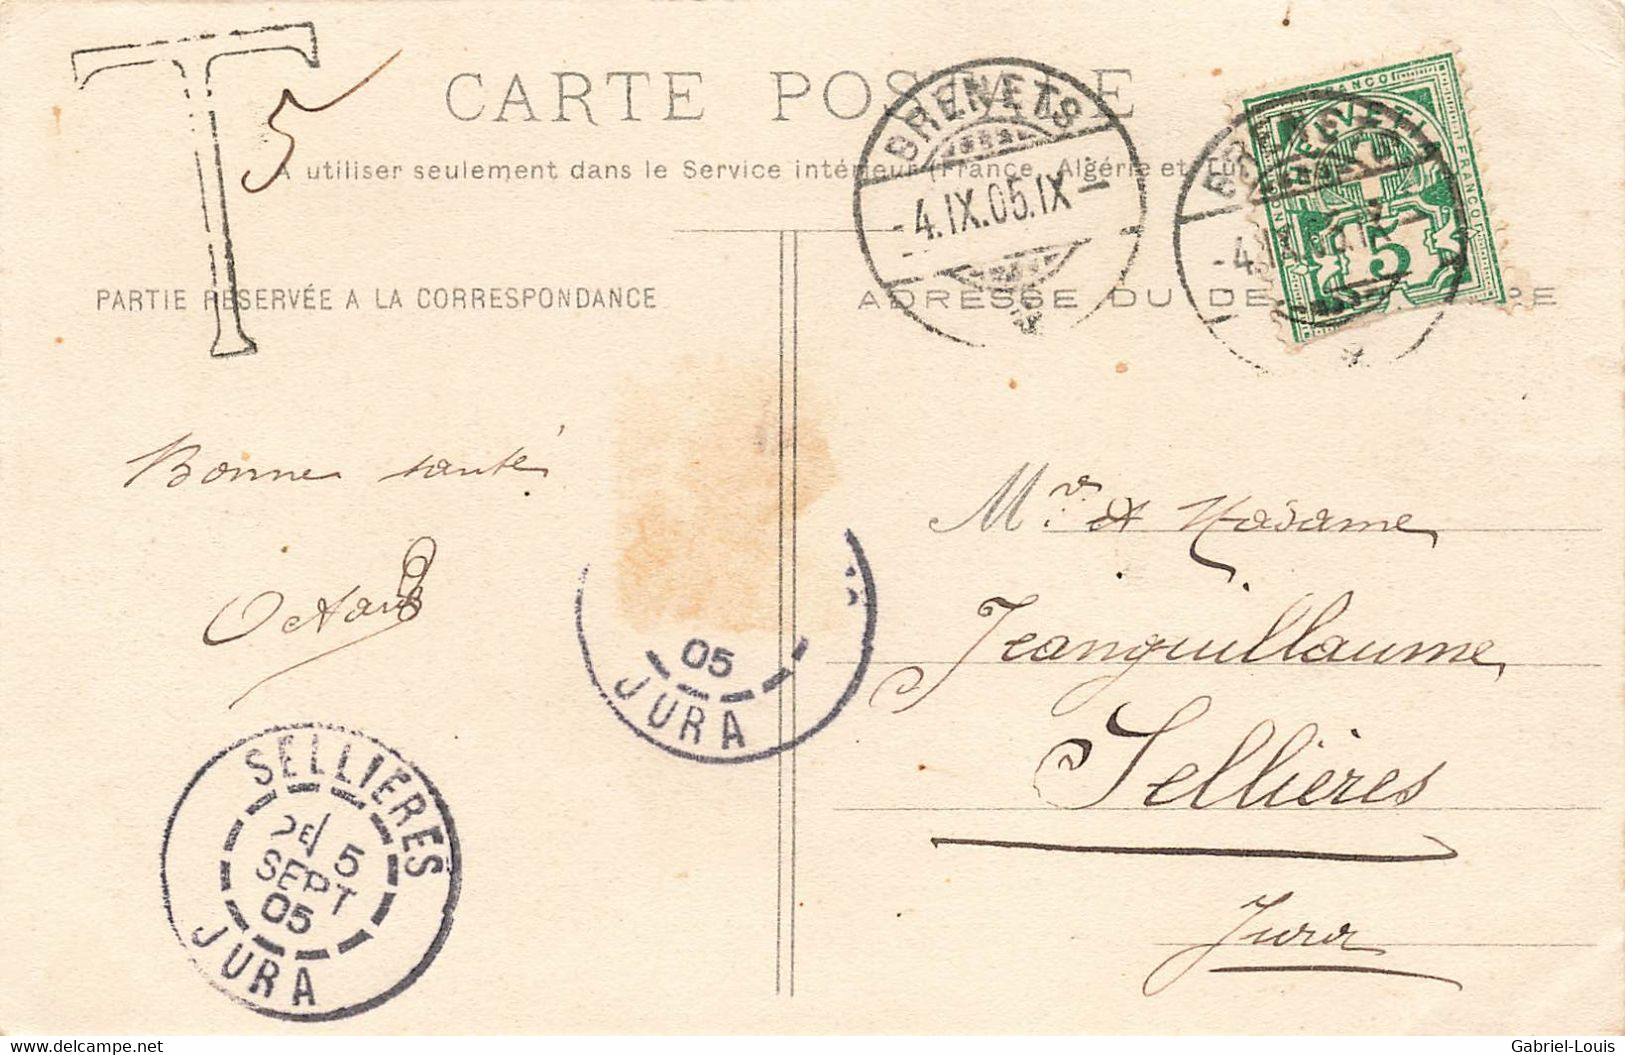 T
5
CARTE POSTALE
A utiliser seulement dans le Service intérieur (France, Algérie et Tu
PARTIE RÉSERVÉE A LA CORRESPONDANCE
ADRESSE DU DE RE
BRENETS
-4.IX.05.IX-
BRENETS
-4.IX.05.IX
HELVETIA
FRANCO
FRANCO
5
Bonne santé
Octave
05
JURA
SELLIERES
5
SEPT
05
JURA
Mr. et Madame
Jeanguillaume
Sellières
Jura
delcampe.net
Gabriel-Louis